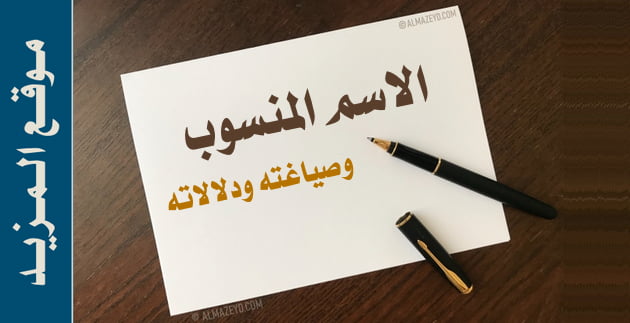 © ALMAZEYD.COM
الاسم المنسوب
وصياغته ودلالاته
موقع المزيد
© ALMAZEYD.COM